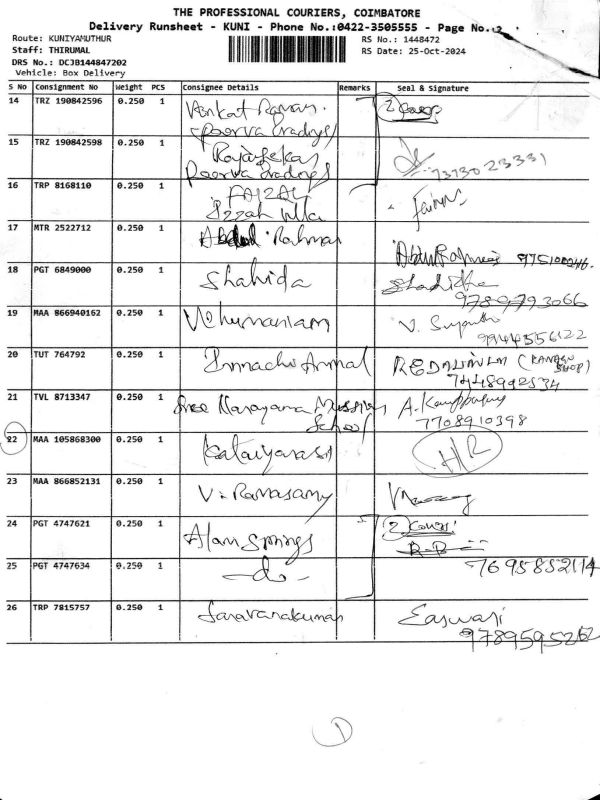 THE PROFESSIONAL COURIERS, COIMBATORE
Delivery Runsheet - KUNI - Phone No.:0422-3505555 - Page No.:2
Route: KUNIYAMUTHUR RS No.: 1448472
Staff: THIRUMAL RS Date: 25-Oct-2024
DRS No.: DCJB144847202
Vehicle: Box Delivery
S No Consignment No Weight PCS Consignee Details Remarks Seal & Signature
14 TRZ 190842596 0.250 1 Venkat Raman 2
Poorva
15 TRZ 190842598 0.250 1 Rajasekar
Poorva 7373023331
16 TRP 8168110 0.250 1 FAIZAL
17 MTR 2522712 0.250 1 Abdul Rahman
18 PGT 6849000 0.250 1 Shahida
9789793066
19 MAA 866940162 0.250 1 V.
9944556122
20 TUT 764792 0.250 1 Ammal
SHOP)
21 TVL 8713347 0.250 1 Sree Narayana Mission A.
School 7708910398
22 MAA 105868300 0.250 1 Kalaiyarasi
23 MAA 866852131 0.250 1 V. Ramasamy
24 PGT 4747621 0.250 1 Alam Springs 2
25 PGT 4747634 0.250 1 -do- 7695852114
26 TRP 7815757 0.250 1 Saravanakumar Easwari
1